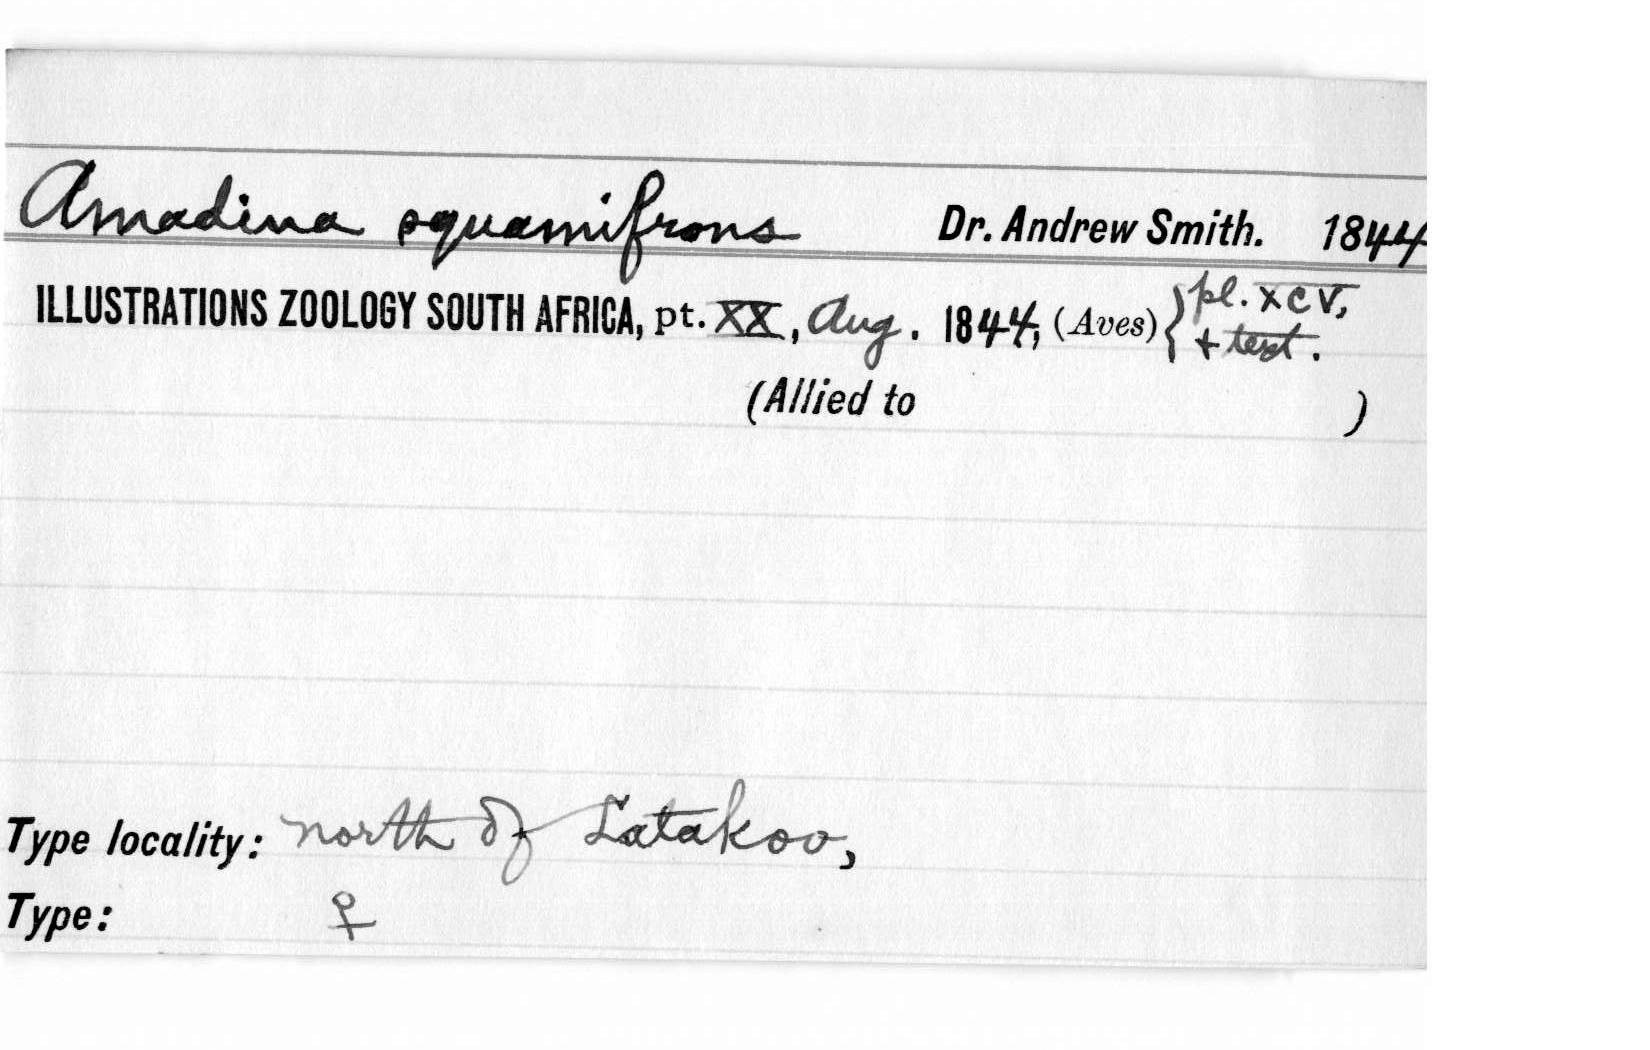 Amadina squamifrons Dr. Andrew Smith. 1844
ILLUSTRATIONS ZOOLOGY SOUTH AFRICA, pt. XX, Aug. 1844, (Aves) { pl. XCV,
+ text.
(Allied to )
Type locality: north of Latakoo,
Type: ♀